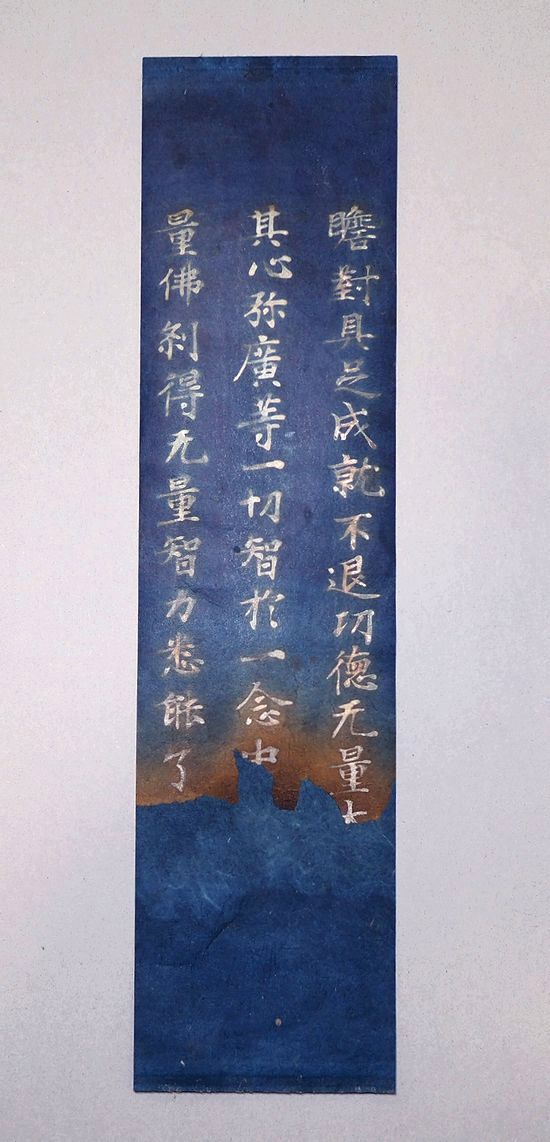 瞻對具足成就不退功德无量
其心弥廣等一切智於一念中
量佛刹得无量智力悉能了